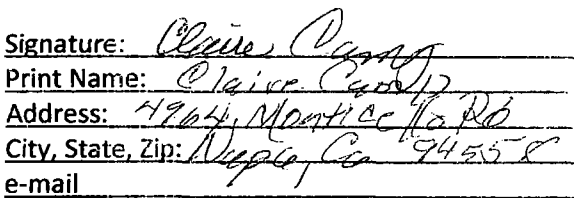 Signature: Claire Camp
Print Name: Claire Camp
Address: 4964, Monticello Rd
City, State, Zip: Napa, Ca 94558
e-mail